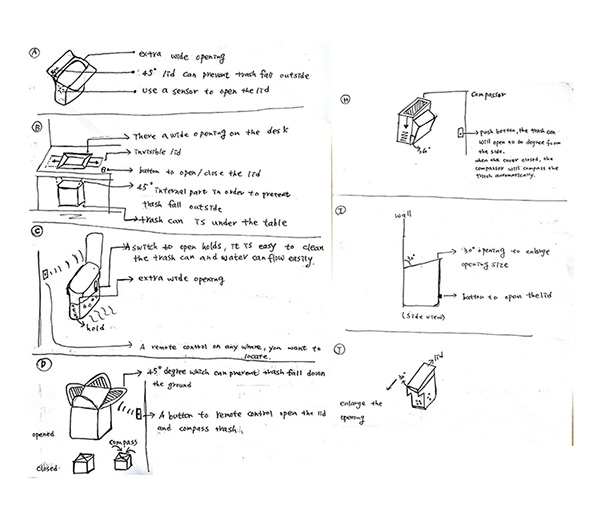 A
extra wide opening
45° lid can prevent trash fall outside
use a sensor to open the lid
B
There a wide opening on the desk
invisible lid
button to open/close the lid
45° internal part in order to prevent
trash fall outside
trash can is under the table
C
A switch to open holds, it is easy to clean
the trash can and water can flow easily.
extra wide opening
hold
A remote control on any where, you want to
locate.
D
45° degree which can prevent trash fall down
the ground
A button to remote control open the lid
and compass trash.
opened
compass
closed
H
Compassor
push button, the trash can
will open to 60 degree from
the side.
when the cover closed, the
compassor will compass the
trash automatically.
I
wall
30°
30° opening to enlarge
opening size
button to open the lid
(side view)
J
lid
enlarge the
opening